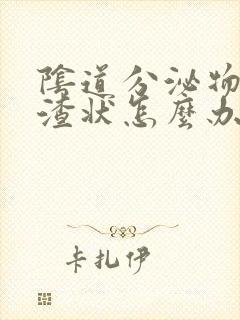 陰道分泌物
渣狀怎麼办
卡扎伊